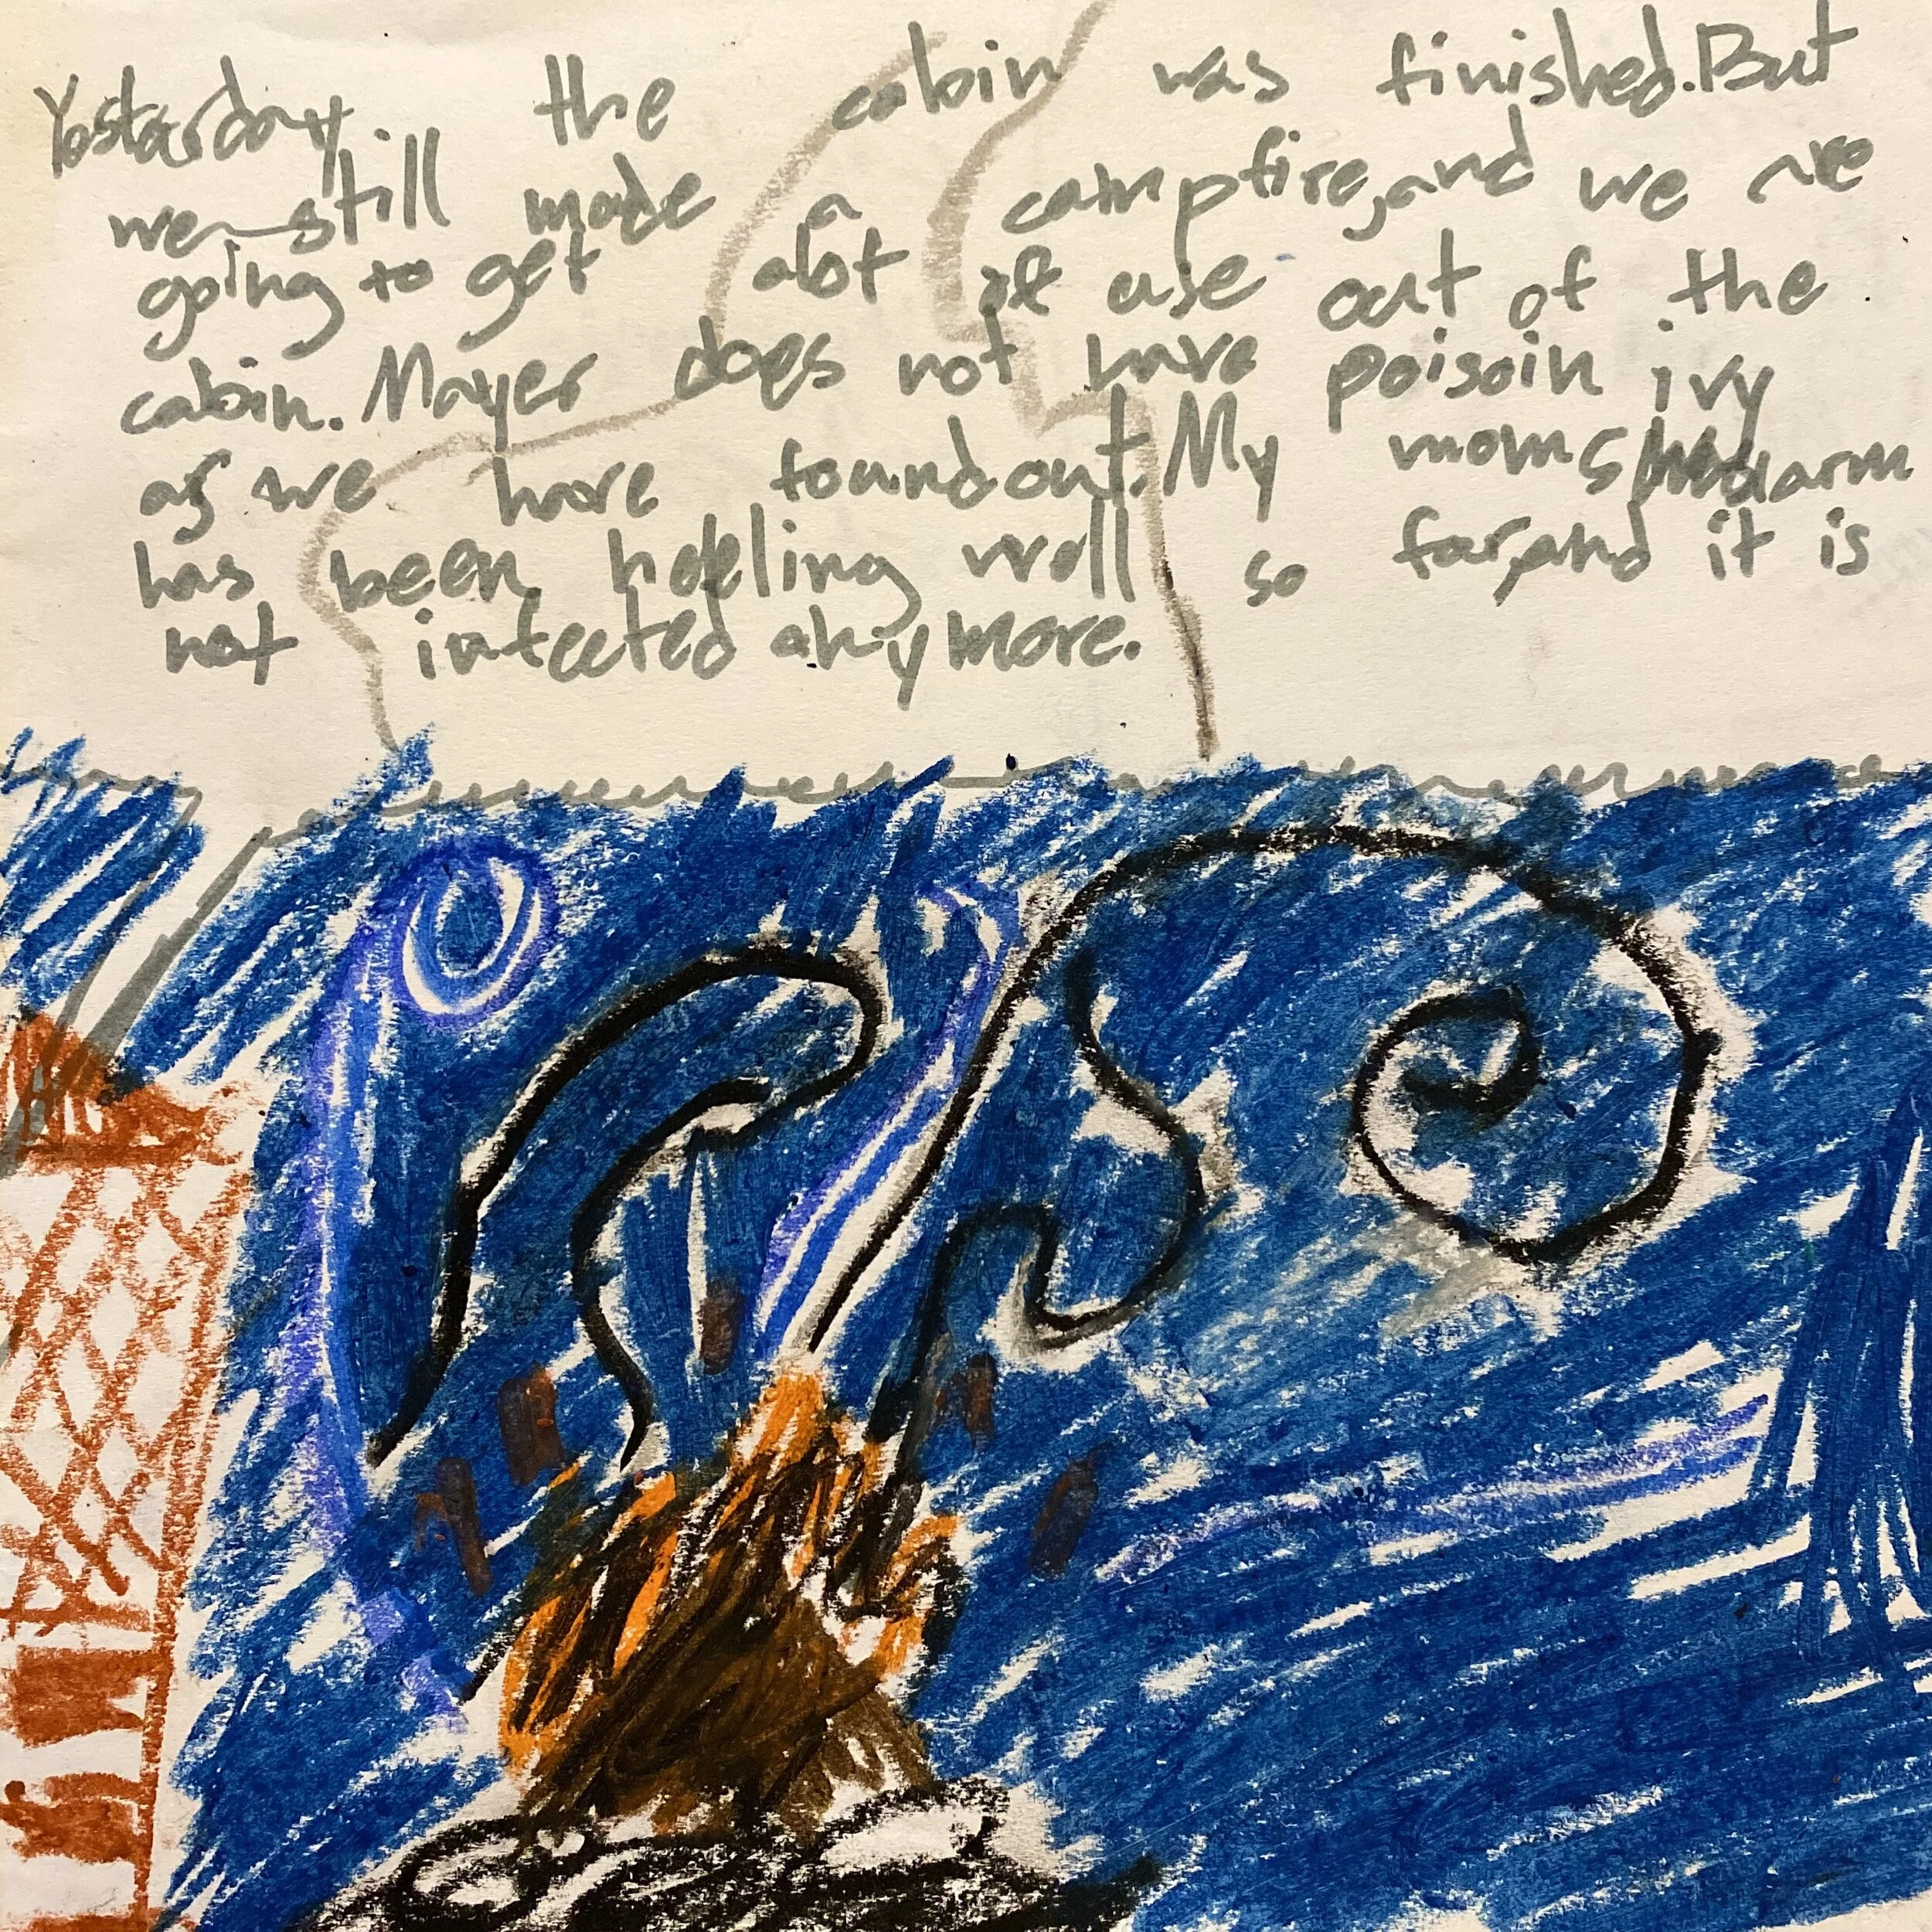 Yostarday the cabin was finished.But
we still made a campfire,and we are
going to get alot of use out of the
cabin. Mayer does not have poisoin ivy
as we have found out. My moms arm
has been hdeling well so far,and it is
not infected anymore.